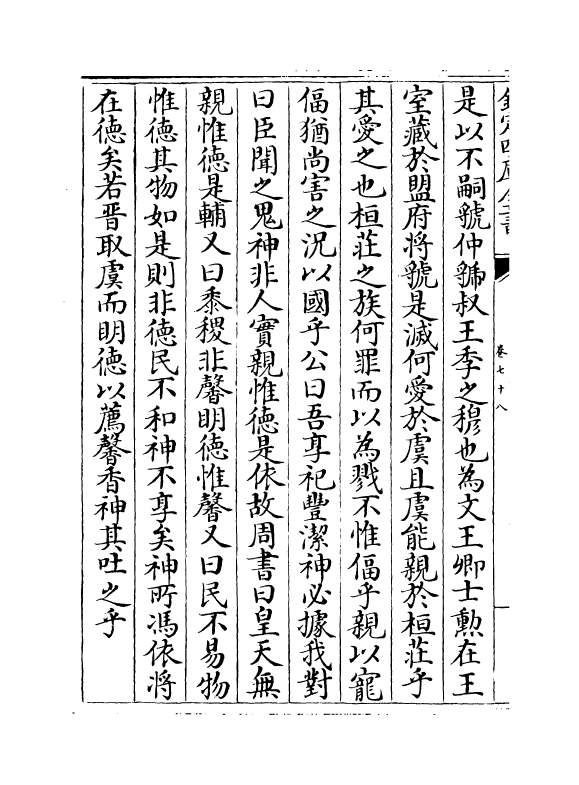 欽定四庫全書
卷七十八
是以不嗣虢仲虢叔王季之穆也為文王卿士勲在王
室藏於盟府將虢是滅何愛於虞且虞能親於桓莊乎
其愛之也桓莊之族何罪而以為戮不惟偪乎親以寵
偪猶尚害之況以國乎公曰吾享祀豐潔神必據我對
曰臣聞之鬼神非人實親惟徳是依故周書曰皇天無
親惟徳是輔又曰黍稷非馨明徳惟馨又曰民不易物
惟徳其物如是則非徳民不和神不享矣神所馮依將
在徳矣若晋取虞而明徳以薦馨香神其吐之乎